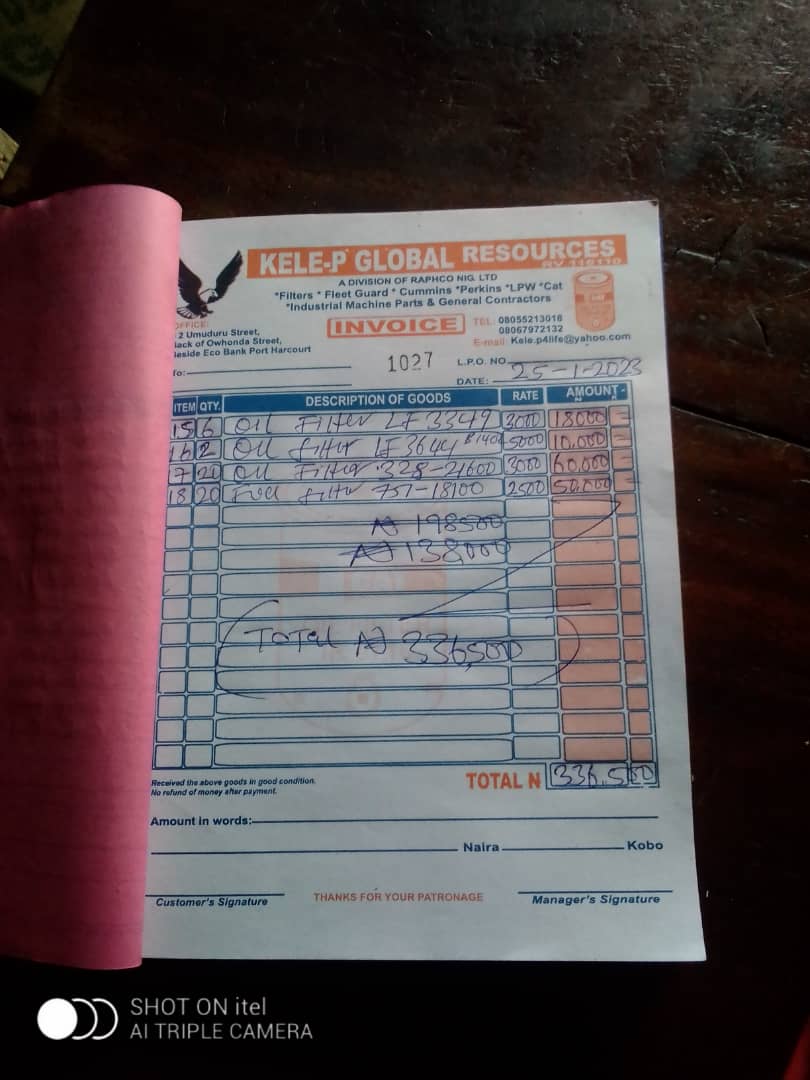 KELE-P GLOBAL RESOURCES
A DIVISION OF RAPHCO NIG. LTD
*Filters * Fleet Guard * Cummins *Perkins *LPW *Cat
*Industrial Machine Parts & General Contractors
OFFICE:
2 Umuduru Street,
Back of Owhonda Street,
Beside Eco Bank Port Harcourt
INVOICE
TEL: 08055213016
08067972132
E-mail: Kele.p4life@yahoo.com
To:
1027
L.P.O. NO.
DATE: 25-1-2023
ITEM QTY. DESCRIPTION OF GOODS RATE AMOUNT
N K
15 6 Oil Filter LF 3349 3000 18000 =
16 2 Oil filter LF 3644 5000 10,000 =
17 Oil Filter 328-21600 3000 60,000 =
18 20 Fuel filter 751-18100 2500 50,000 =
₦ 198500
₦ 138,000
Total ₦ 336,500
Received the above goods in good condition.
No refund of money after payment.
TOTAL N 336,500
Amount in words:
Naira Kobo
Customer's Signature
THANKS FOR YOUR PATRONAGE
Manager's Signature
SHOT ON itel
AI TRIPLE CAMERA